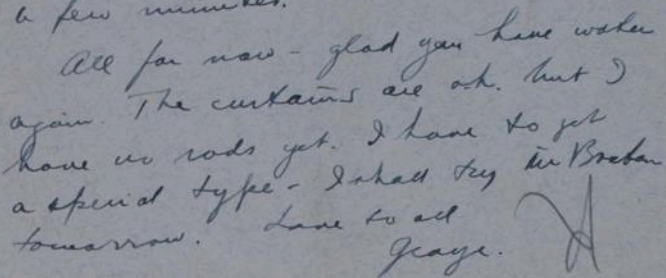 a few minutes.
All for now - glad you have water
again. The curtains are o.k. but I
have no rods yet. I have to get
a special type - I shall try in Boston
tomorrow. Love to all
George.